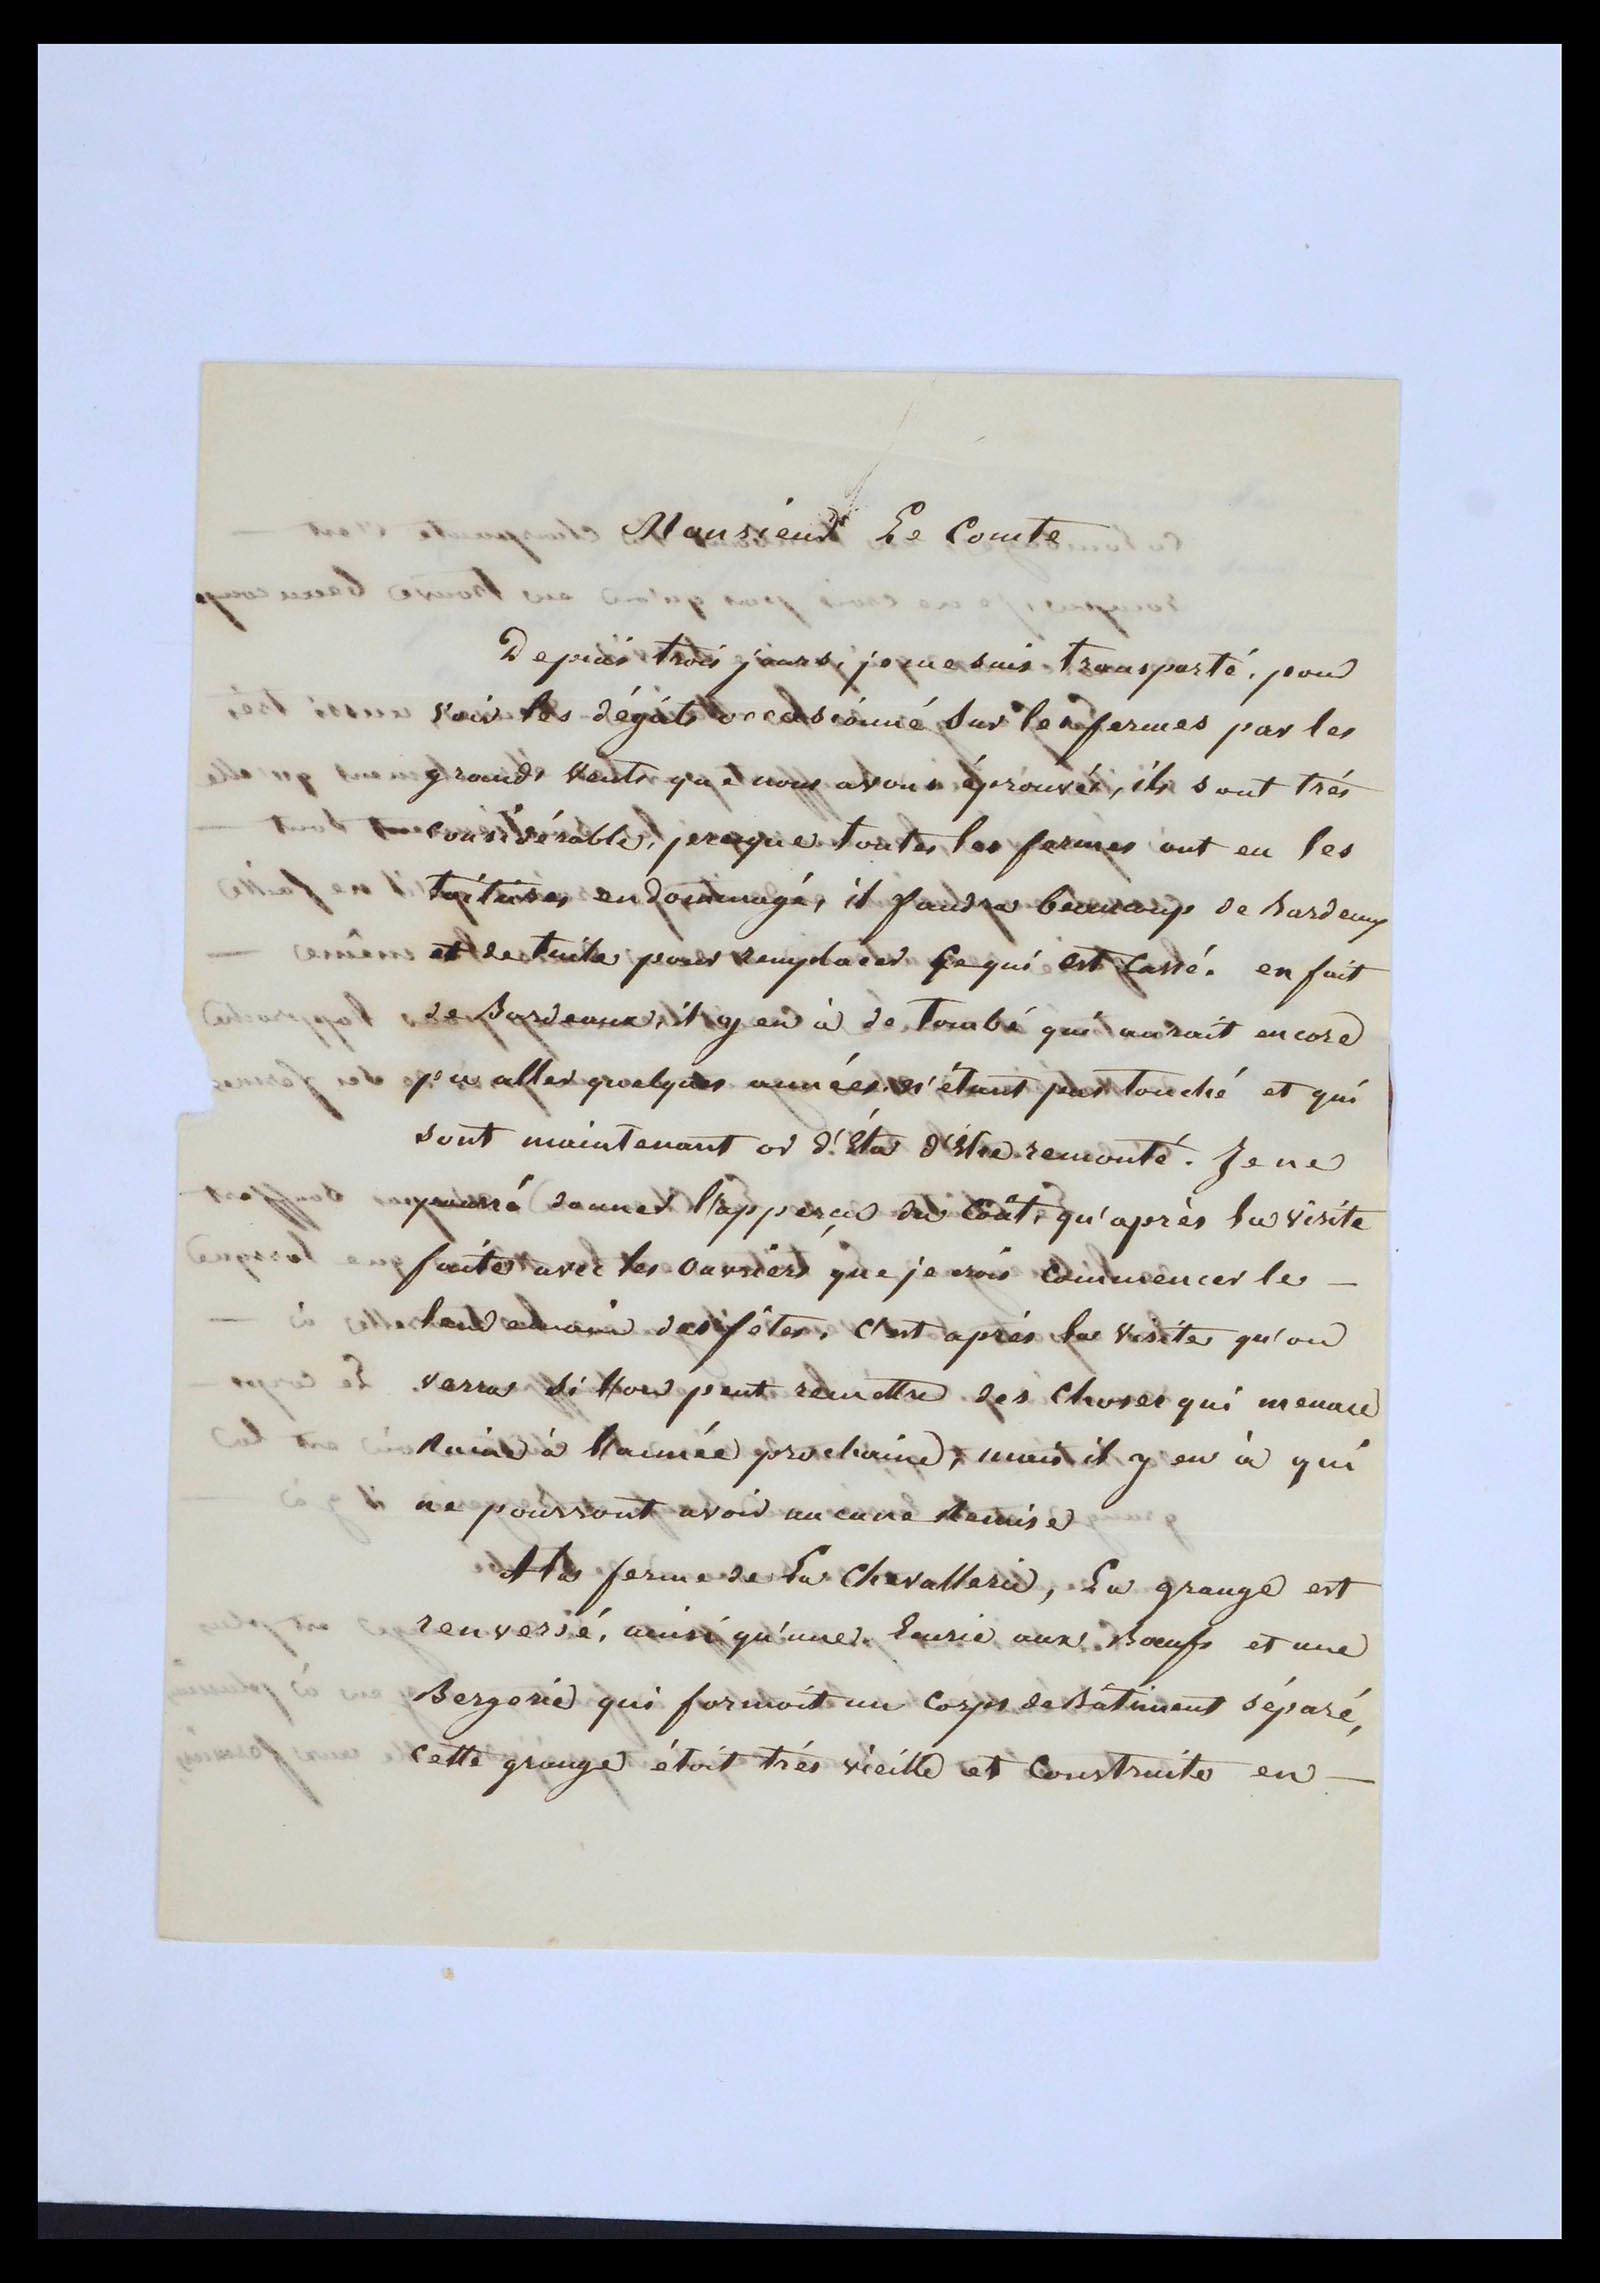 Monsieur Le Comte
Depuis trois jours, je me suis transporté, pour
voir les dégâts occasionné sur les fermes par les
grands vents que nous avons éprouvés, ils sont très
considérable, presque toutes les fermes ont eu les
toitures endommagé, il faudra beaucoup de Bardeaux
et de tuile pour remplacer ce qui est cassé. en fait
de Bardeaux, il y en à de tombé qui aurait encore
pu aller quelques années n'étant pas touché et qui
sont maintenant or d'État d'être remonté. Je ne
pourré donner l'apperçu du Coût, qu'après la visite
faite avec les ouvriers que je vois commencer le —
lendemain des fêtes, C'est après la visite qu'on
verra si l'on peut remettre des choses qui menace
Ruine à l'année prochaine, mais il y en à qui
ne pourront avoir aucune Remise
A la ferme de La Chevallerie, La grange est
renversé, ainsi qu'une Eurie aux Boeufs et une
Bergerie qui formoit un Corps de Bâtiment séparé,
Cette grange étoit très vieille et Construite en —